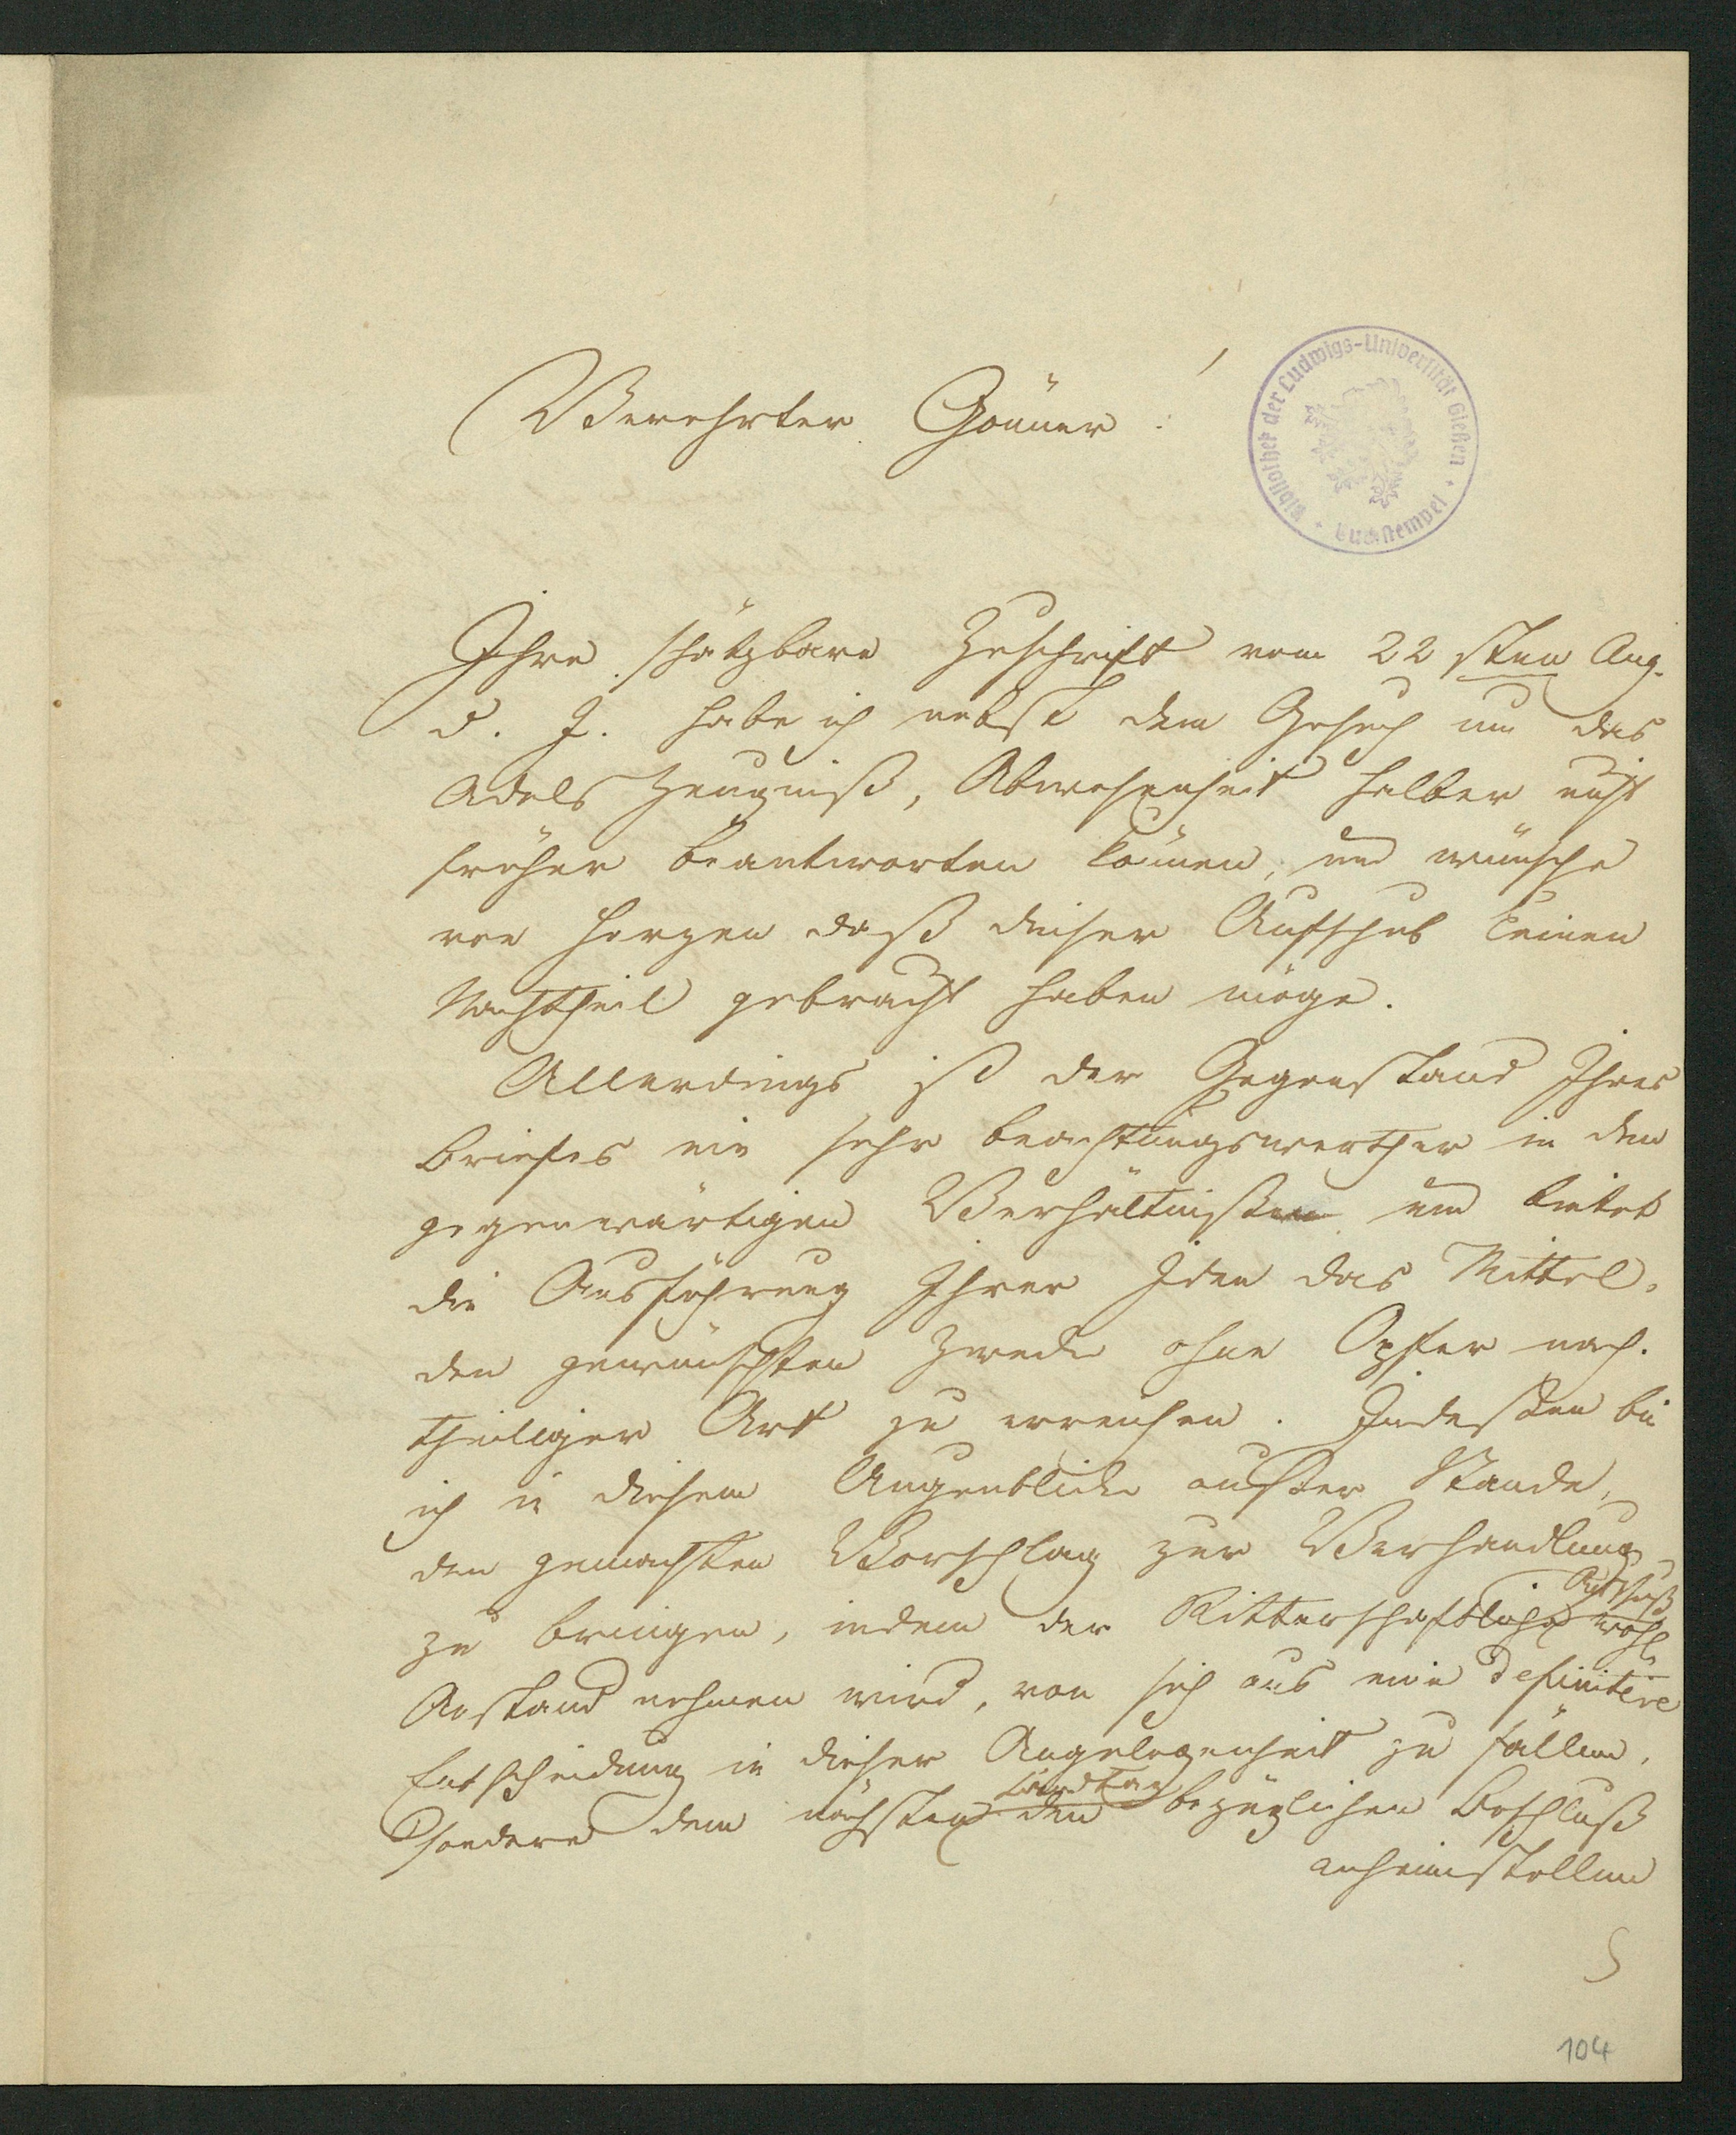 Verehrter Gönner!
Bibliothek der Ludwigs-Universität Gießen
Buchstempel
Ihre schätzbare Zuschrift vom 22sten Aug.
d. J. habe ich nebst dem Gesuch um das
Adels Zeugniß, Abwesenheit halber nicht
früher beantworten können, und wünsche
von Herzen daß dieser Aufschub keinen
Nachtheil gebracht haben möge.
Allerdings ist der Gegenstand Ihres
Briefes ein sehr beachtungswerther in den
gegenwärtigen Verhältnißen und bietet
die Ausführung Ihrer Idee das Mittel,
den gewünschten Zweck ohne Opfer nach-
theiliger Art zu erreichen. Indeßen bin
ich in diesem Augenblicke außer Stande,
den gemachten Vorschlag zur Verhandlung
zu bringen, indem der Ritterschaftliche Ausschuß wohl
Anstand nehmen wird, von sich aus eine definitive
Entscheidung in dieser Angelegenheit zu fällen,
sondern dem nächsten Landtag den bezüglichen Beschluß
anheimstellen
104